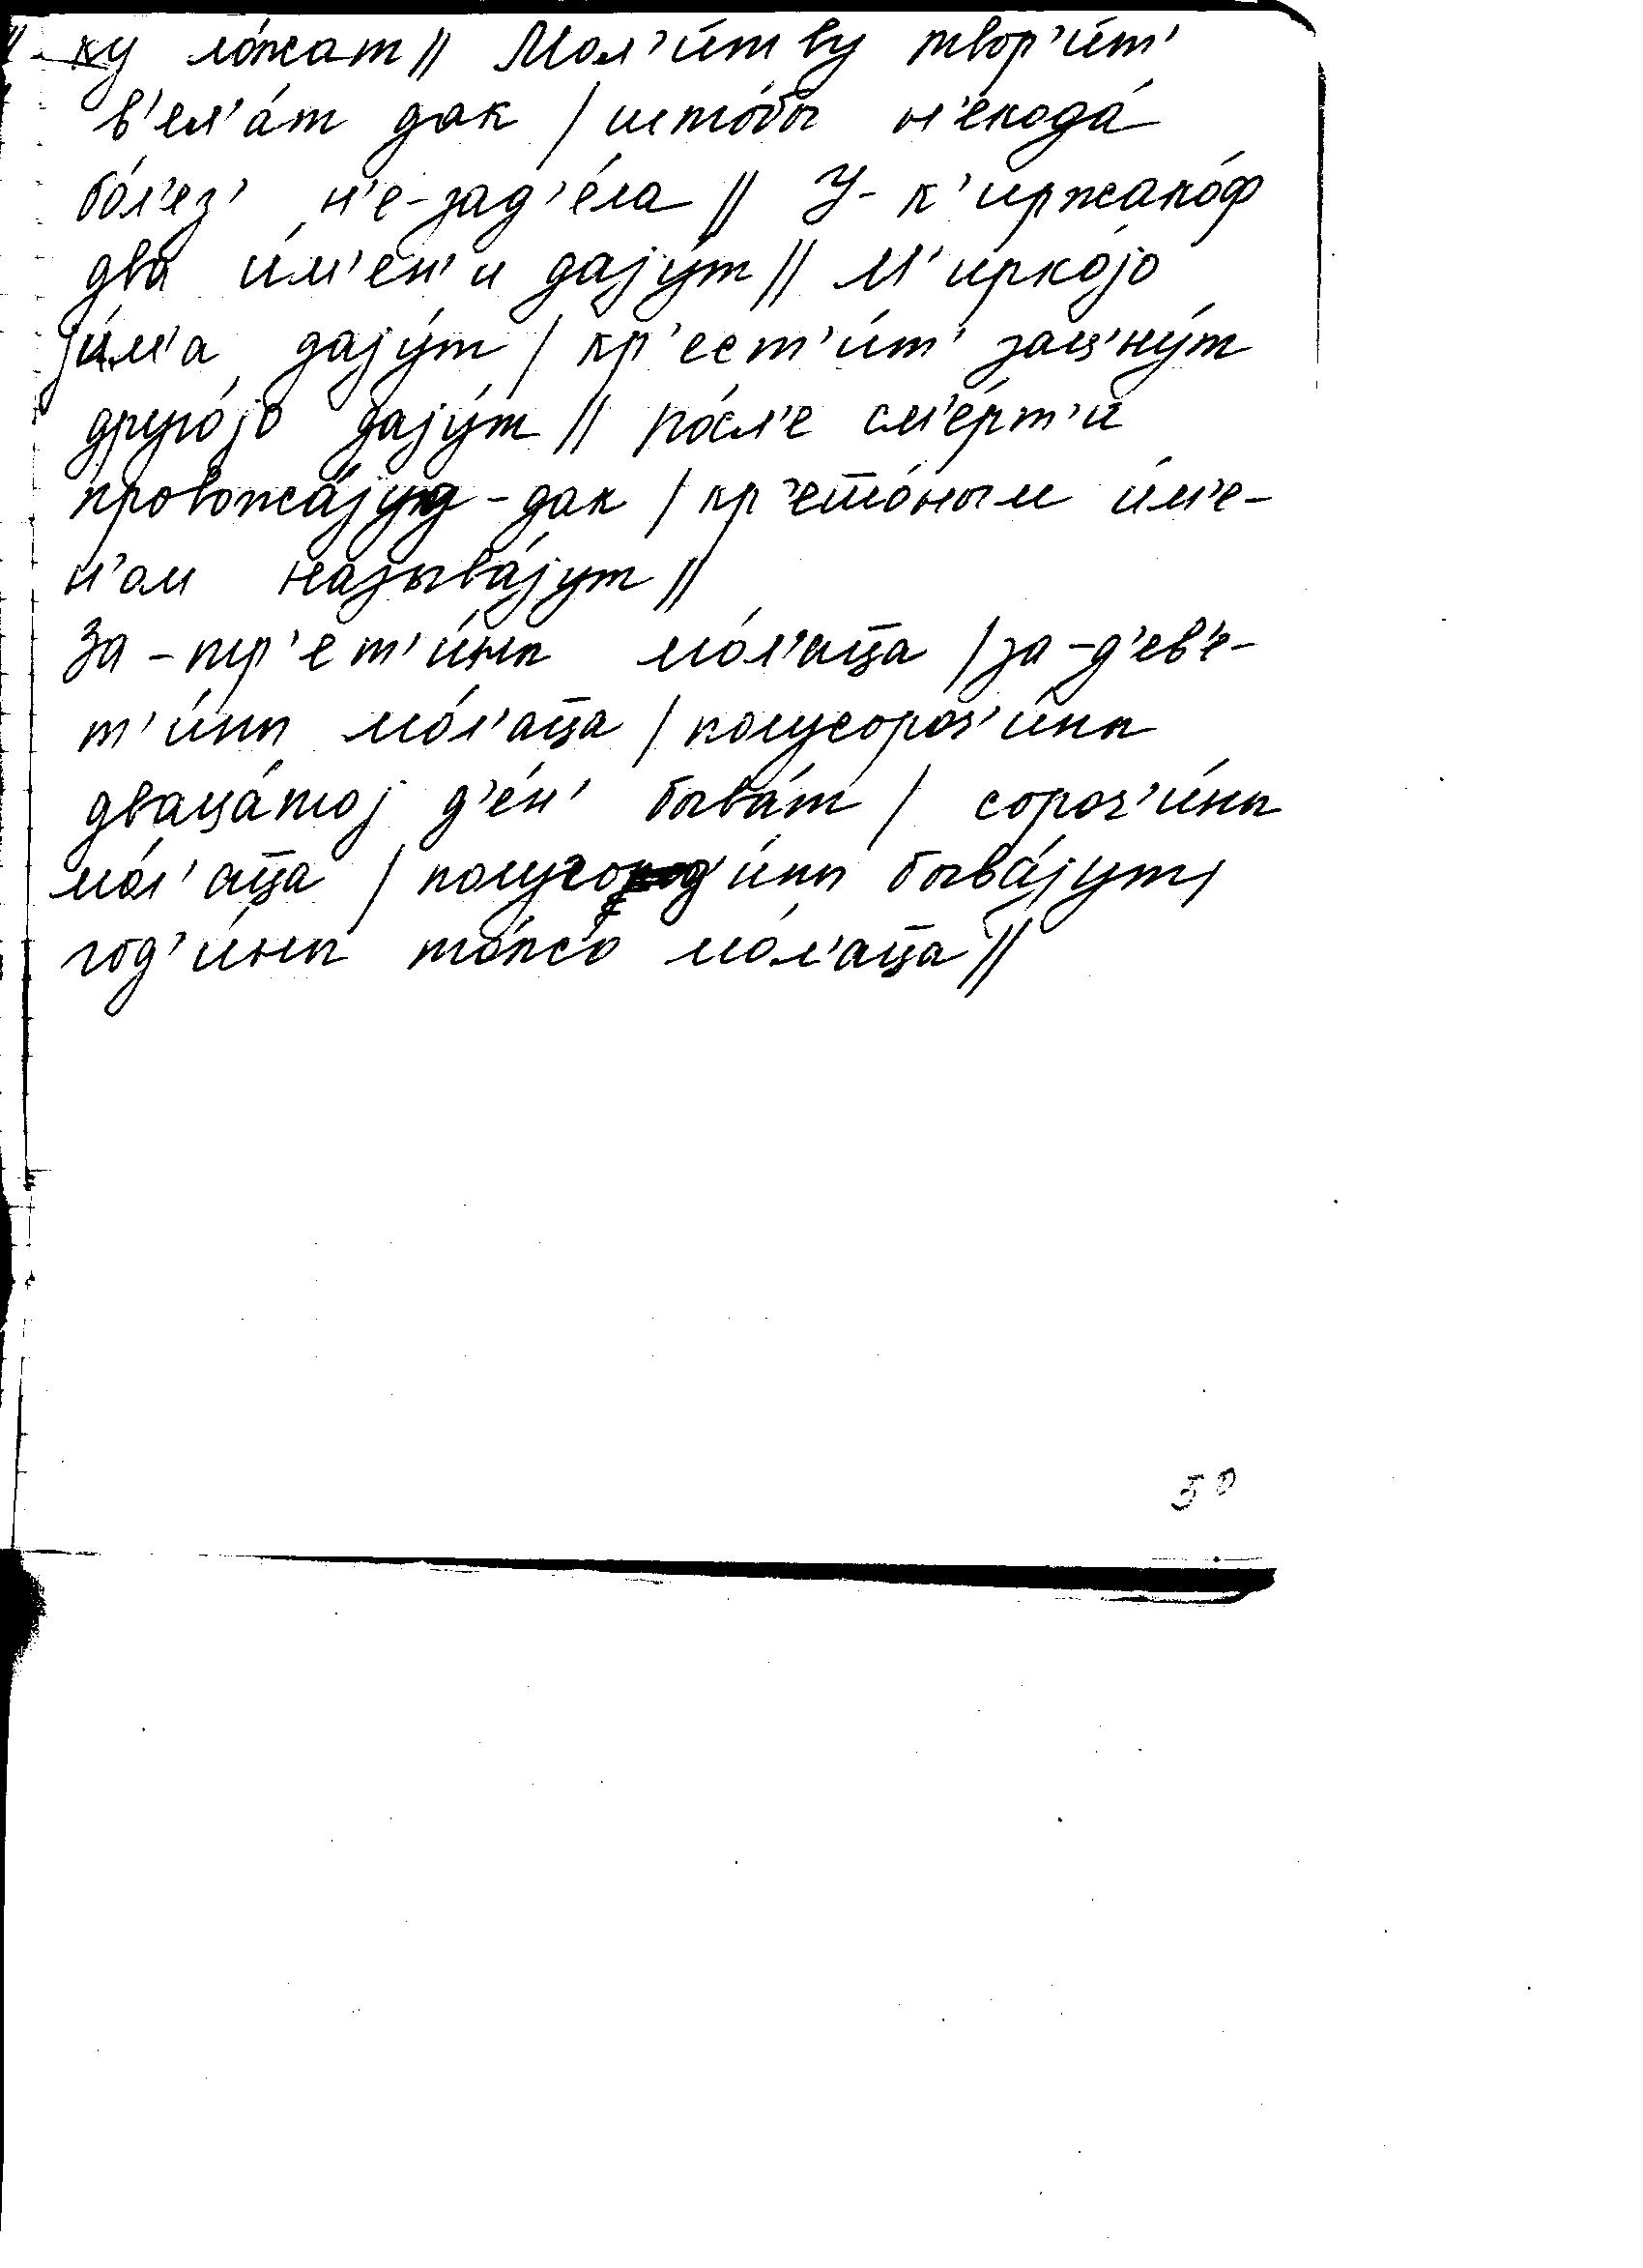 ку ло́жат // Мол'и́тву твор'и́т'
в'ел'а́т дак / што́бы н'екода́
бо́л'ез' н'е-зад'е́ла // У- к'иржако́ф
два́ и́м'ен'и даjу́т // М'ирко́jо
jи́м'а даjу́т / кр'ест'и́т' зац'ну́т
друго́jо даjу́т // по́сл'е см'е́рт'и
провожа́jуд-дак / кр'ещо́ным и́м'е-
н'ом называ́jут //
За-тр'ет'и́ны мо́л'ац̄а / за-д'ев'е-
т'и́ны мо́л'ац̄а / полусороч'и́ны
дваца́тоj д'е́н' быва́т / сороч'и́ны
мо́л'ац̄а / полугод'и́ны быва́jут /
год'и́ны то́жо мо́л'ац̄а //
50